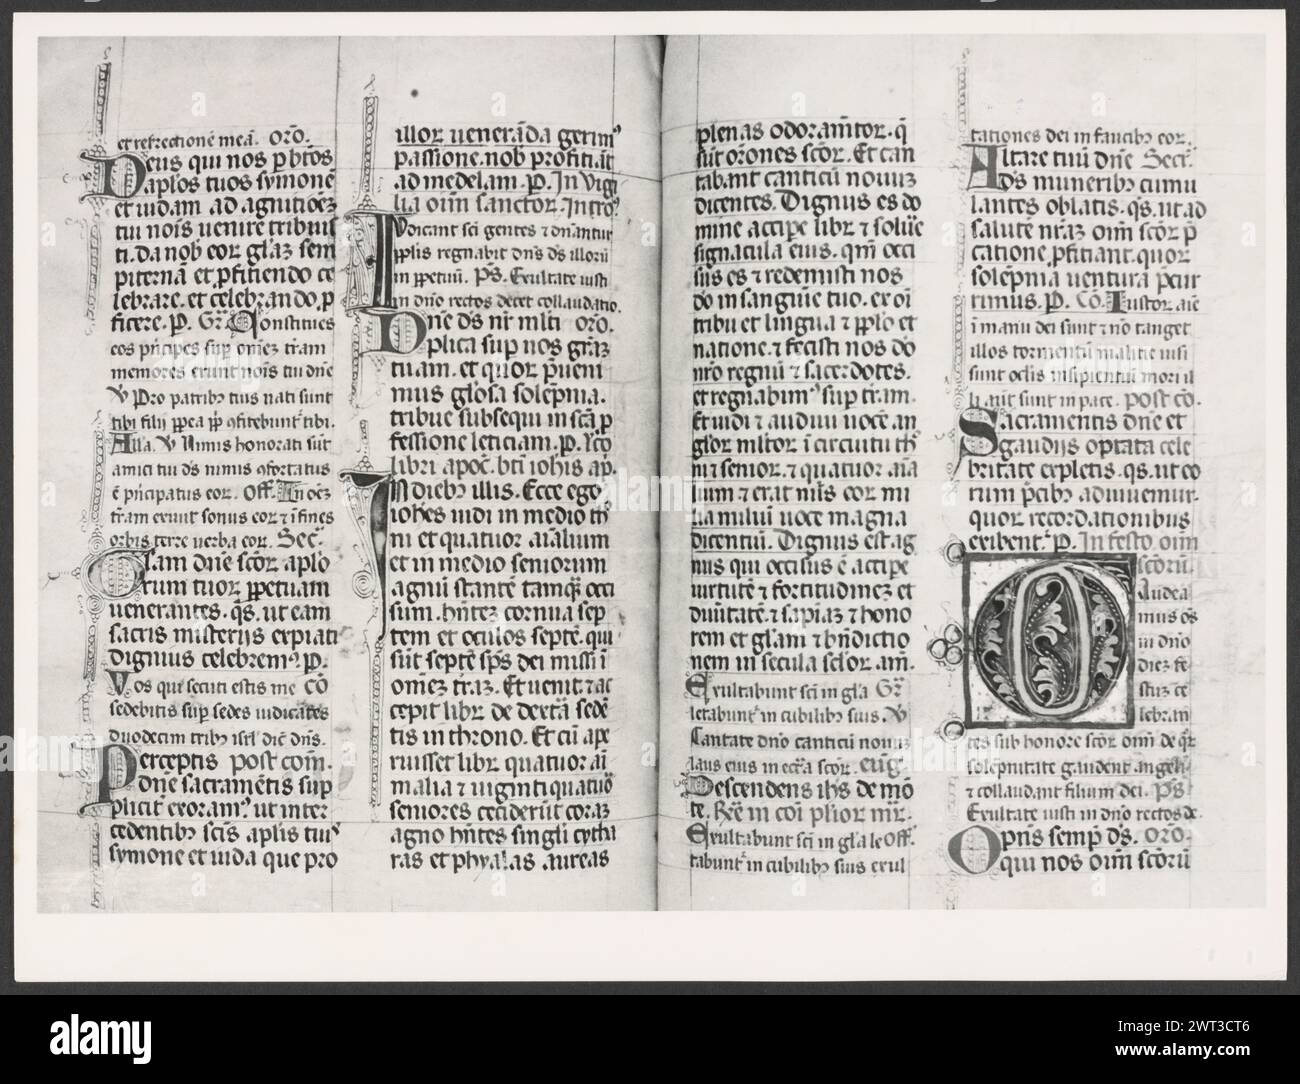 et refrectionē meā. Orō.
Deus qui nos p btōs
aplos tuos symonē
et iudam ad agnitiōez
tui noīs uenire tribuis
ti. da nob eor glaz sem
piternā et pfitiendo ce
lebrare. et celebrando, p
ficere. P. Gr. Constitues
eos prīcipes sup omēz trram
memores erunt noīs tui dnē
V Pro patribꝰ tuis nati sunt
tibi filij ppea pp ꝯfitebunt tibi.
Alla. V Nimis honorati sūt
amici tui ds nimis ꝯfortatus
ē prīcipatus eor. Off. In oēz
trram exiuit sonus eor ⁊ ī fines
orbis terre uerba eor. Sec.
Glam dnē scōr aplo
rum tuor ppetuam
uenerantes. qs. ut eam
sacris misterijs expiati
dignius celebremꝰ. P.
Vos qui secuti estis me Cō
sedebitis sup sedes iudicātes
duodecim tribꝰ isrl dic dns.
Perceptis post com.
dnē sacramētis sup
plicit exoramꝰ. ut inter
cedentibꝰ scīs aplis tuis
symone et iuda que pro
illor ueneranda gerimꝰ
passione. nob profitiāt
ad medelam. P. In Vigi
lia oīm sanctor. Introꝰ.
Iudicant scī gentes ⁊ dnantur
pplis regnabit dns ds illorū
in ppetuū. Ps. Exultate iusti
in dnō rectos decet collaudatio.
Dnē ds nr mlti orō.
plica sup nos graz
tuam. et quor pueni
mus glosa solēpnia.
tribue subsequi in scā p
fessione leticiam. P. Lco
libri apoc. btī iohis ap.
In diebꝰ illis. Ecce ego
iohēs uidi in medio thr
ni et quatuor aīalium
et in medio seniorum
agnū stantē tamqꝫ occi
sum. hntez cornua sep
tem et oculos septē. qui
sūt septē sps dei missi ī
omēz trraz. Et uenit. ⁊ ac
cepit libr de dextā sedē
tis in throno. Et cū ape
ruisset libr quatuor aī
malia ⁊ uiginti quatuor
seniores ceciderūt coraz
agno hntes singli cytha
ras et phyalas aureas
plenas odoramtor. q
sūt orōnes scōr. Et can
tabant canticū nouuz
dicentes. Dignus es do
mine accipe libr ⁊ soluē
signacula eius. qm occi
sus es ⁊ redemisti nos
dō in sanguie tuo. ex oī
tribu et lingua ⁊ pplo et
natione. ⁊ fecisti nos dō
nrō regnū ⁊ sacerdotes.
et regnabimꝰ sup trram.
Et uidi ⁊ audiui uocē an
glor mltor ī circuitu thr
ni ⁊ senior. ⁊ quatuor aīa
lium ⁊ erat nūs eor mi
lia miliū uoce magna
dicentiū. Dignus est ag
nus qui occisus ē accipe
uirtutē ⁊ fortitudinez et
diuītatē. ⁊ sapiāz ⁊ hono
rem et glam ⁊ bndictio
nem in secula sclor. am.
Exultabunt scī in gla Gr
letabunt in cubilibꝰ suis. V
Cantate dnō canticū nouuz
laus eius in eccla scōr. eug.
Descendens ihs de mō
te. Rē in coī plior mr.
Exultabunt scī in gla le Off.
tabunt in cubilibꝰ suis exul
tationes dei in faucibꝰ eor.
Altare tuū dnē Secr.
ds muneribꝰ cumu
lantes oblatis. qs. ut ad
salutē nraz oīm scōr p
catione pfitiant. quor
solēpnia uentura pcur
rimus. P. Cō. Iustor aīe
ī manu dei sunt ⁊ nō tanget
illos tormentū malitie uisi
sunt oclis insipientiū mori il
li aut sunt in pace. post cō.
Sacramentis dnē et
gaudijs optata cele
britate expletis. qs. ut eo
rum pcibꝰ adiuuemur.
quor recordationibus
exibent. P. In festo oīm
scōrū.
Gaudea
mus oēs
in dnō
diez fe
stuz ce
lebran
tes sub honore scōr omī de qr
solēpnitate gaudent angeli
⁊ collaudant filium dei. Ps
Exultate iusti in dnō rectos de.
Opnis semp ds. orō.
qui nos oīm scōrū
alamy
Image ID: 2WT3CT6
www.alamy.com